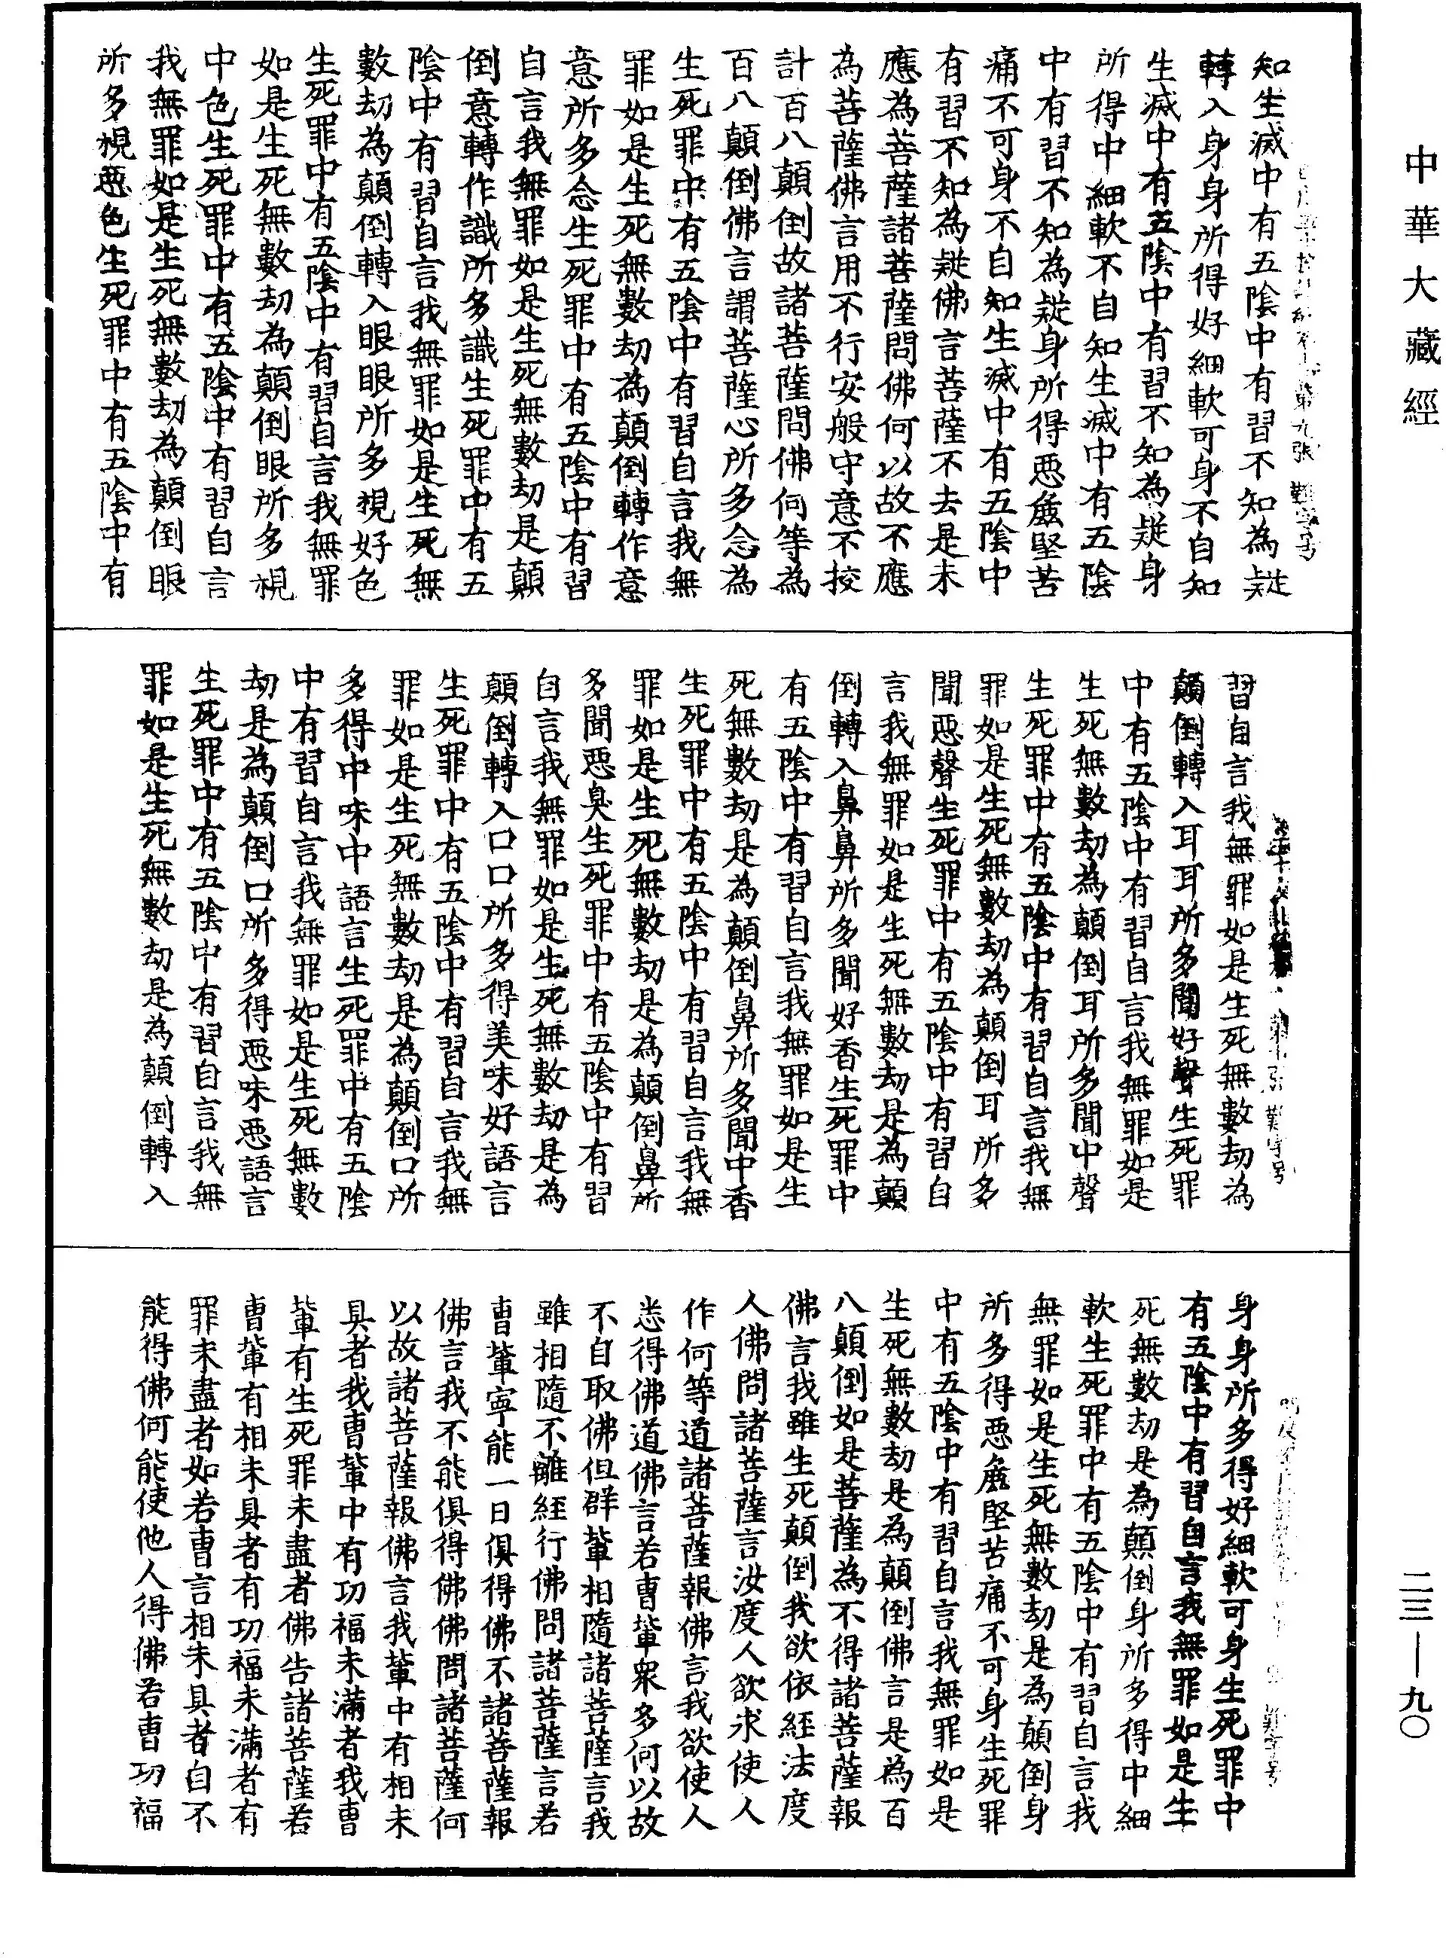 中華大藏經
二三—九〇
知生滅中有五陰中有習不知為礙
轉入身身所得好細軟可身不自知
生滅中有五陰中有習不知為礙身
所得中細軟不自知生滅中有五陰
中有習不知為礙身所得惡麁堅苦
痛不可身不自知生滅中有五陰中
有習不知為礙佛言菩薩不去是未
應為菩薩諸菩薩問佛何以故不應
為菩薩佛言用不行安般守意不挍
計百八顛倒故諸菩薩問佛何等為
百八顛倒佛言謂菩薩心所多念為
生死罪中有五陰中有習自言我無
罪如是生死無數劫為顛倒轉作意
意所多念生死罪中有五陰中有習
自言我無罪如是生死無數劫是顛
倒意轉作識所多識生死罪中有五
陰中有習自言我無罪如是生死無
數劫為顛倒轉入眼眼所多視好色
生死罪中有五陰中有習自言我無罪
如是生死無數劫為顛倒眼所多視
中色生死罪中有五陰中有習自言
我無罪如是生死無數劫為顛倒眼
所多視惡色生死罪中有五陰中有
習自言我無罪如是生死無數劫為
顛倒轉入耳耳所多聞好聲生死罪
中有五陰中有習自言我無罪如是
生死無數劫為顛倒耳所多聞中聲
生死罪中有五陰中有習自言我無
罪如是生死無數劫為顛倒耳所多
聞惡聲生死罪中有五陰中有習自
言我無罪如是生死無數劫是為顛
倒轉入鼻鼻所多聞好香生死罪中
有五陰中有習自言我無罪如是生
死無數劫是為顛倒鼻所多聞中香
生死罪中有五陰中有習自言我無
罪如是生死無數劫是為顛倒鼻所
多聞惡臭生死罪中有五陰中有習
自言我無罪如是生死無數劫是為
顛倒轉入口口所多得美味好語言
生死罪中有五陰中有習自言我無
罪如是生死無數劫是為顛倒口所
多得中味中語言生死罪中有五陰
中有習自言我無罪如是生死無數
劫是為顛倒口所多得惡味惡語言
生死罪中有五陰中有習自言我無
罪如是生死無數劫是為顛倒轉入
身身所多得好細軟可身生死罪中
有五陰中有習自言我無罪如是生
死無數劫是為顛倒身所多得中細
軟生死罪中有五陰中有習自言我
無罪如是生死無數劫是為顛倒身
所多得惡麁堅苦痛不可身生死罪
中有五陰中有習自言我無罪如是
生死無數劫是為顛倒佛言是為百
八顛倒如是菩薩為不得諸菩薩報
佛言我雖生死顛倒我欲依經法度
人佛問諸菩薩言汝度人欲求使人
作何等道諸菩薩報佛言我欲使人
悉得佛道佛言若曹輩眾多何以故
不自取佛但群輩相隨諸菩薩言我
雖相隨不離經行佛問諸菩薩言若
曹輩寧能一日俱得佛不諸菩薩報
佛言我不能俱得佛佛問諸菩薩何
以故諸菩薩報佛言我輩中有相未
具者我曹輩中有功福未滿者我曹
輩有生死罪未盡者佛告諸菩薩若
曹輩有相未具者有功福未滿者有
罪未盡者如若曹言相未具者自不
能得佛何能使他人得佛若曹功福